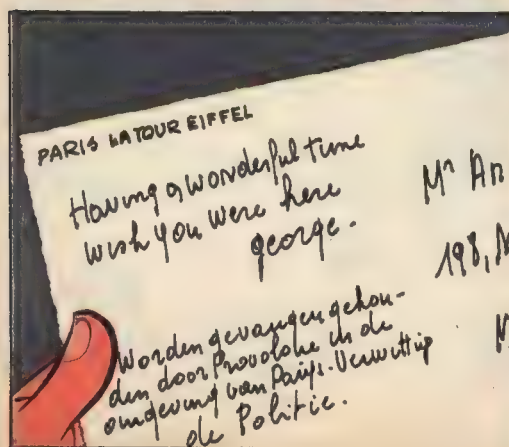 PARIS LA TOUR EIFFEL
Having a wonderful time
wish you were here
george.
Worden gevangen gehou-
den door Provolone in de
omgeving van Parijs. Verwittig
de Politie.
Mr An
198,